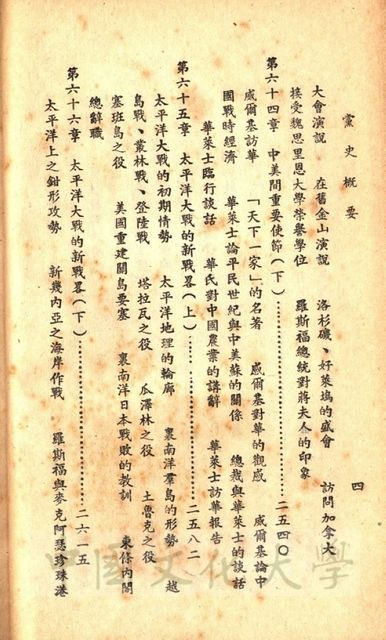 黨史概要
四
大會演說　在舊金山演說　洛杉磯、好萊塢的盛會　訪問加拿大
接受魏思里恩大學榮譽學位　羅斯福總統對蔣夫人的印象
第六十四章　中美間重要使節(下)……二五四〇
威爾基訪華　「天下一家」的名著　威爾基對華的觀感　威爾基論中
國戰時經濟　華萊士論平民世紀與中美蘇的關係　總裁與華萊士的談話
華萊士臨行談話　華氏對中國農業的講辭　華萊士訪華報告
第六十五章　太平洋大戰的新戰畧(上)……二五八二
太平洋大戰的初期情勢　太平洋地理的輪廓　裏南洋羣島的形勢　越
島戰、叢林戰、登陸戰　塔拉瓦之役　瓜澤林之役　土魯克之役
塞班島之役　美國重建關島要塞　裏南洋日本戰敗的教訓　東條內閣
總辭職
第六十六章　太平洋大戰的新戰畧(下)……二六一五
太平洋上之鉗形攻勢　新幾內亞之海岸作戰　羅斯福與麥克阿瑟珍珠港
中國文化大學